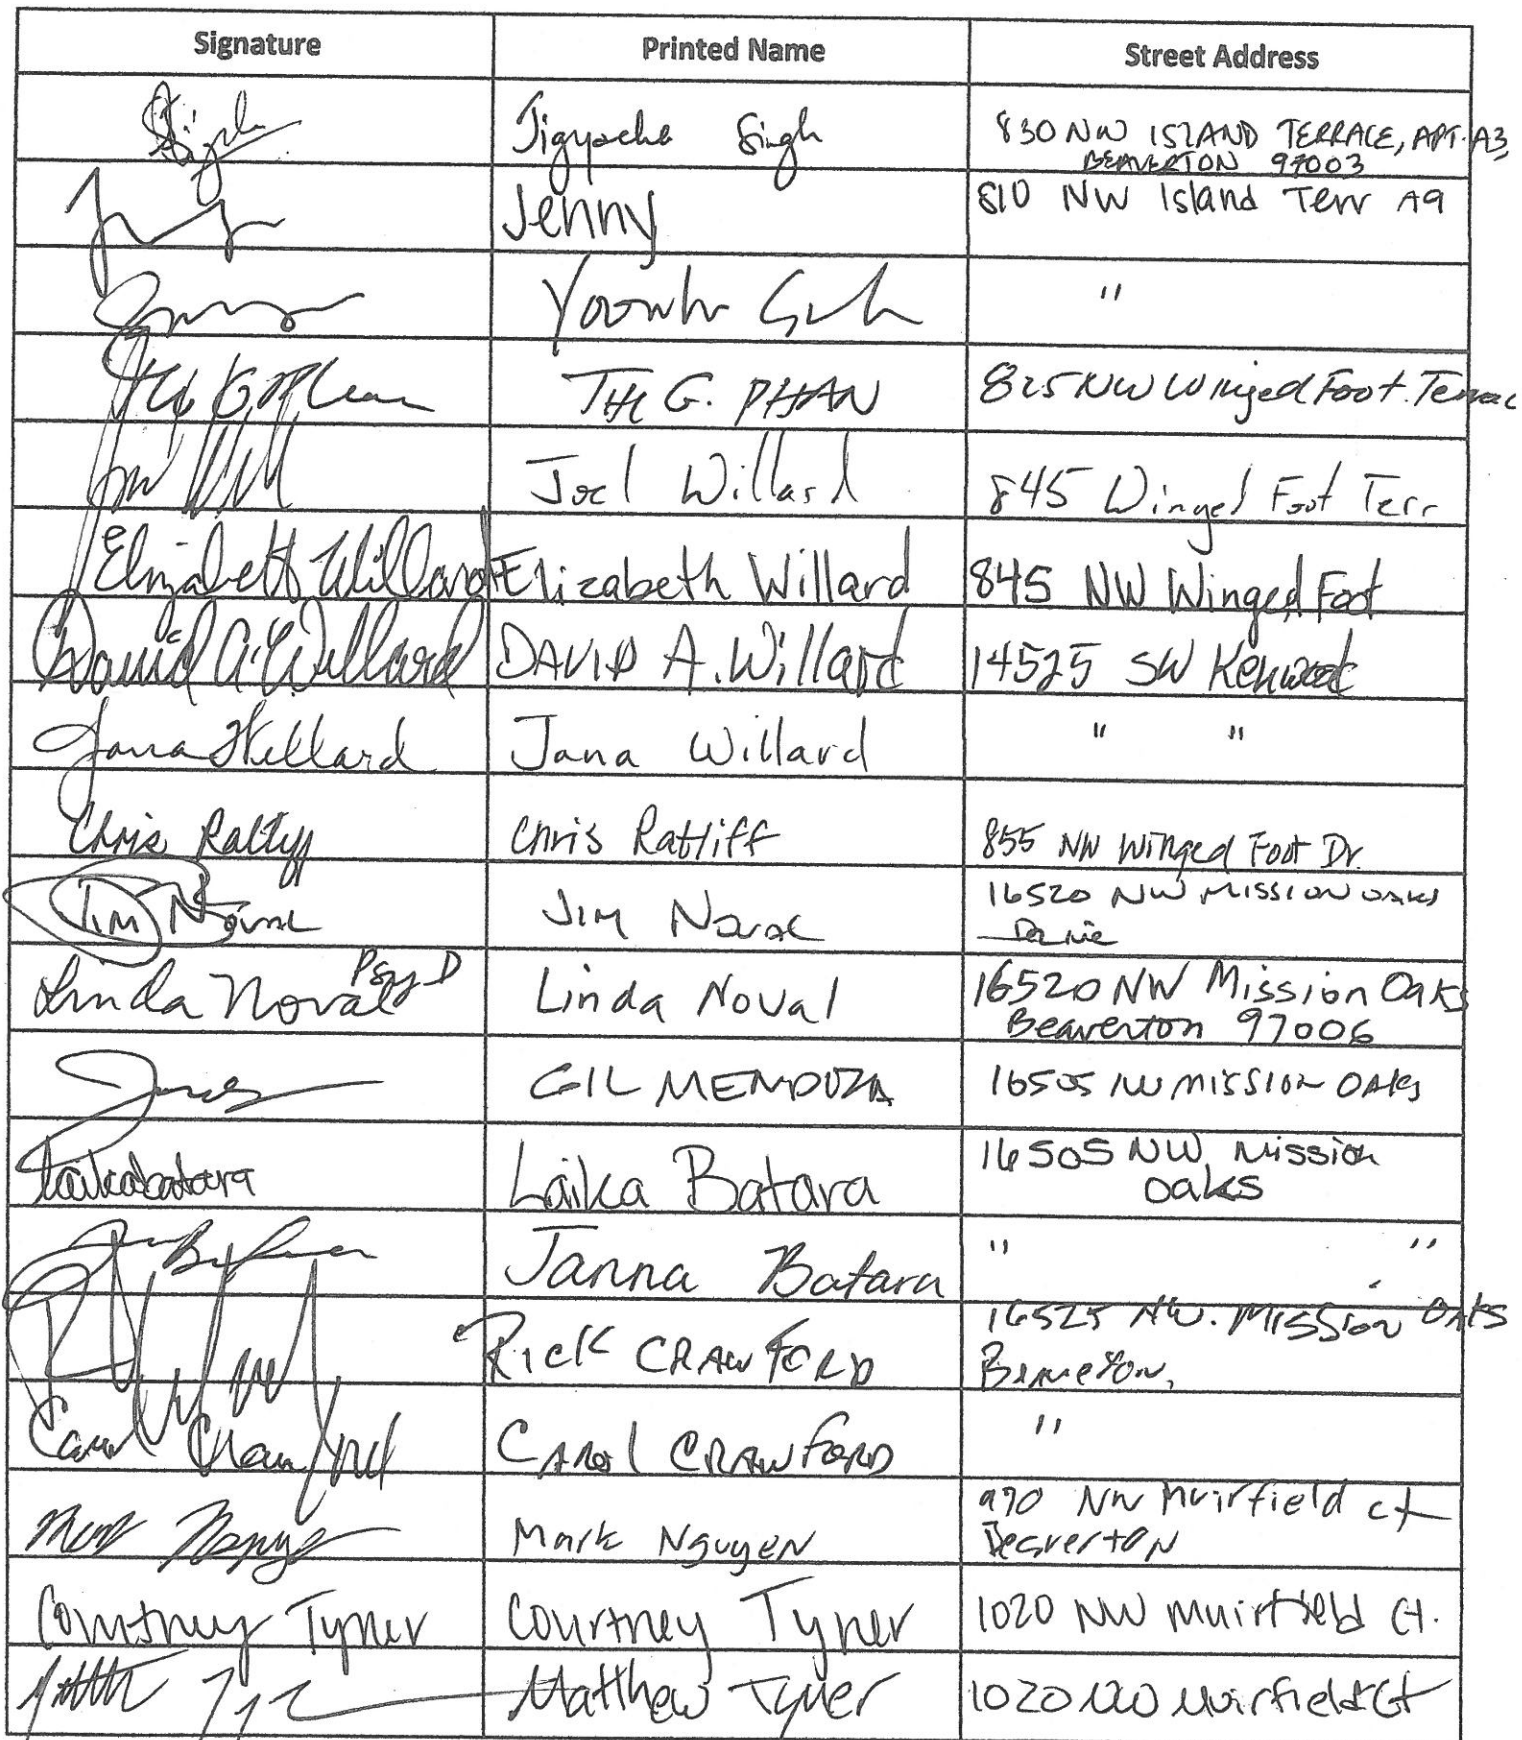 Signature Printed Name Street Address
Singh 830 NW ISLAND TERRACE, APT. A3,
BEAVERTON 97003
Jenny 810 NW Island Terr A9
"
THI G. PHAN 825 NW Winged Foot Terrace
Joel Willard 845 Winged Foot Terr
Elizabeth Willard Elizabeth Willard 845 NW Winged Foot
David A. Willard DAVID A. Willard 14525 SW Kenwood
Jana Willard Jana Willard " "
Chris Ratliff Chris Ratliff 855 NW Winged Foot Dr.
Jim Noval JIM Noval 16520 NW MISSION OAKS
Drive
Linda Noval Psy D Linda Noval 16520 NW Mission Oaks
Beaverton 97006
GIL MENDOZA 16505 NW MISSION OAKS
Laikabatara Laika Batara 16505 NW Mission
Oaks
Janna Batara " "
RICK CRAWFORD 16525 NW. MISSION OAKS
Beaverton,
Carol Crawford CAROL CRAWFORD "
Mark Nguyen Mark Nguyen 970 NW Muirfield ct
Beaverton
Courtney Tyner Courtney Tyner 1020 NW Muirfield Ct.
Matthew Tyner 1020 NW Muirfield Ct